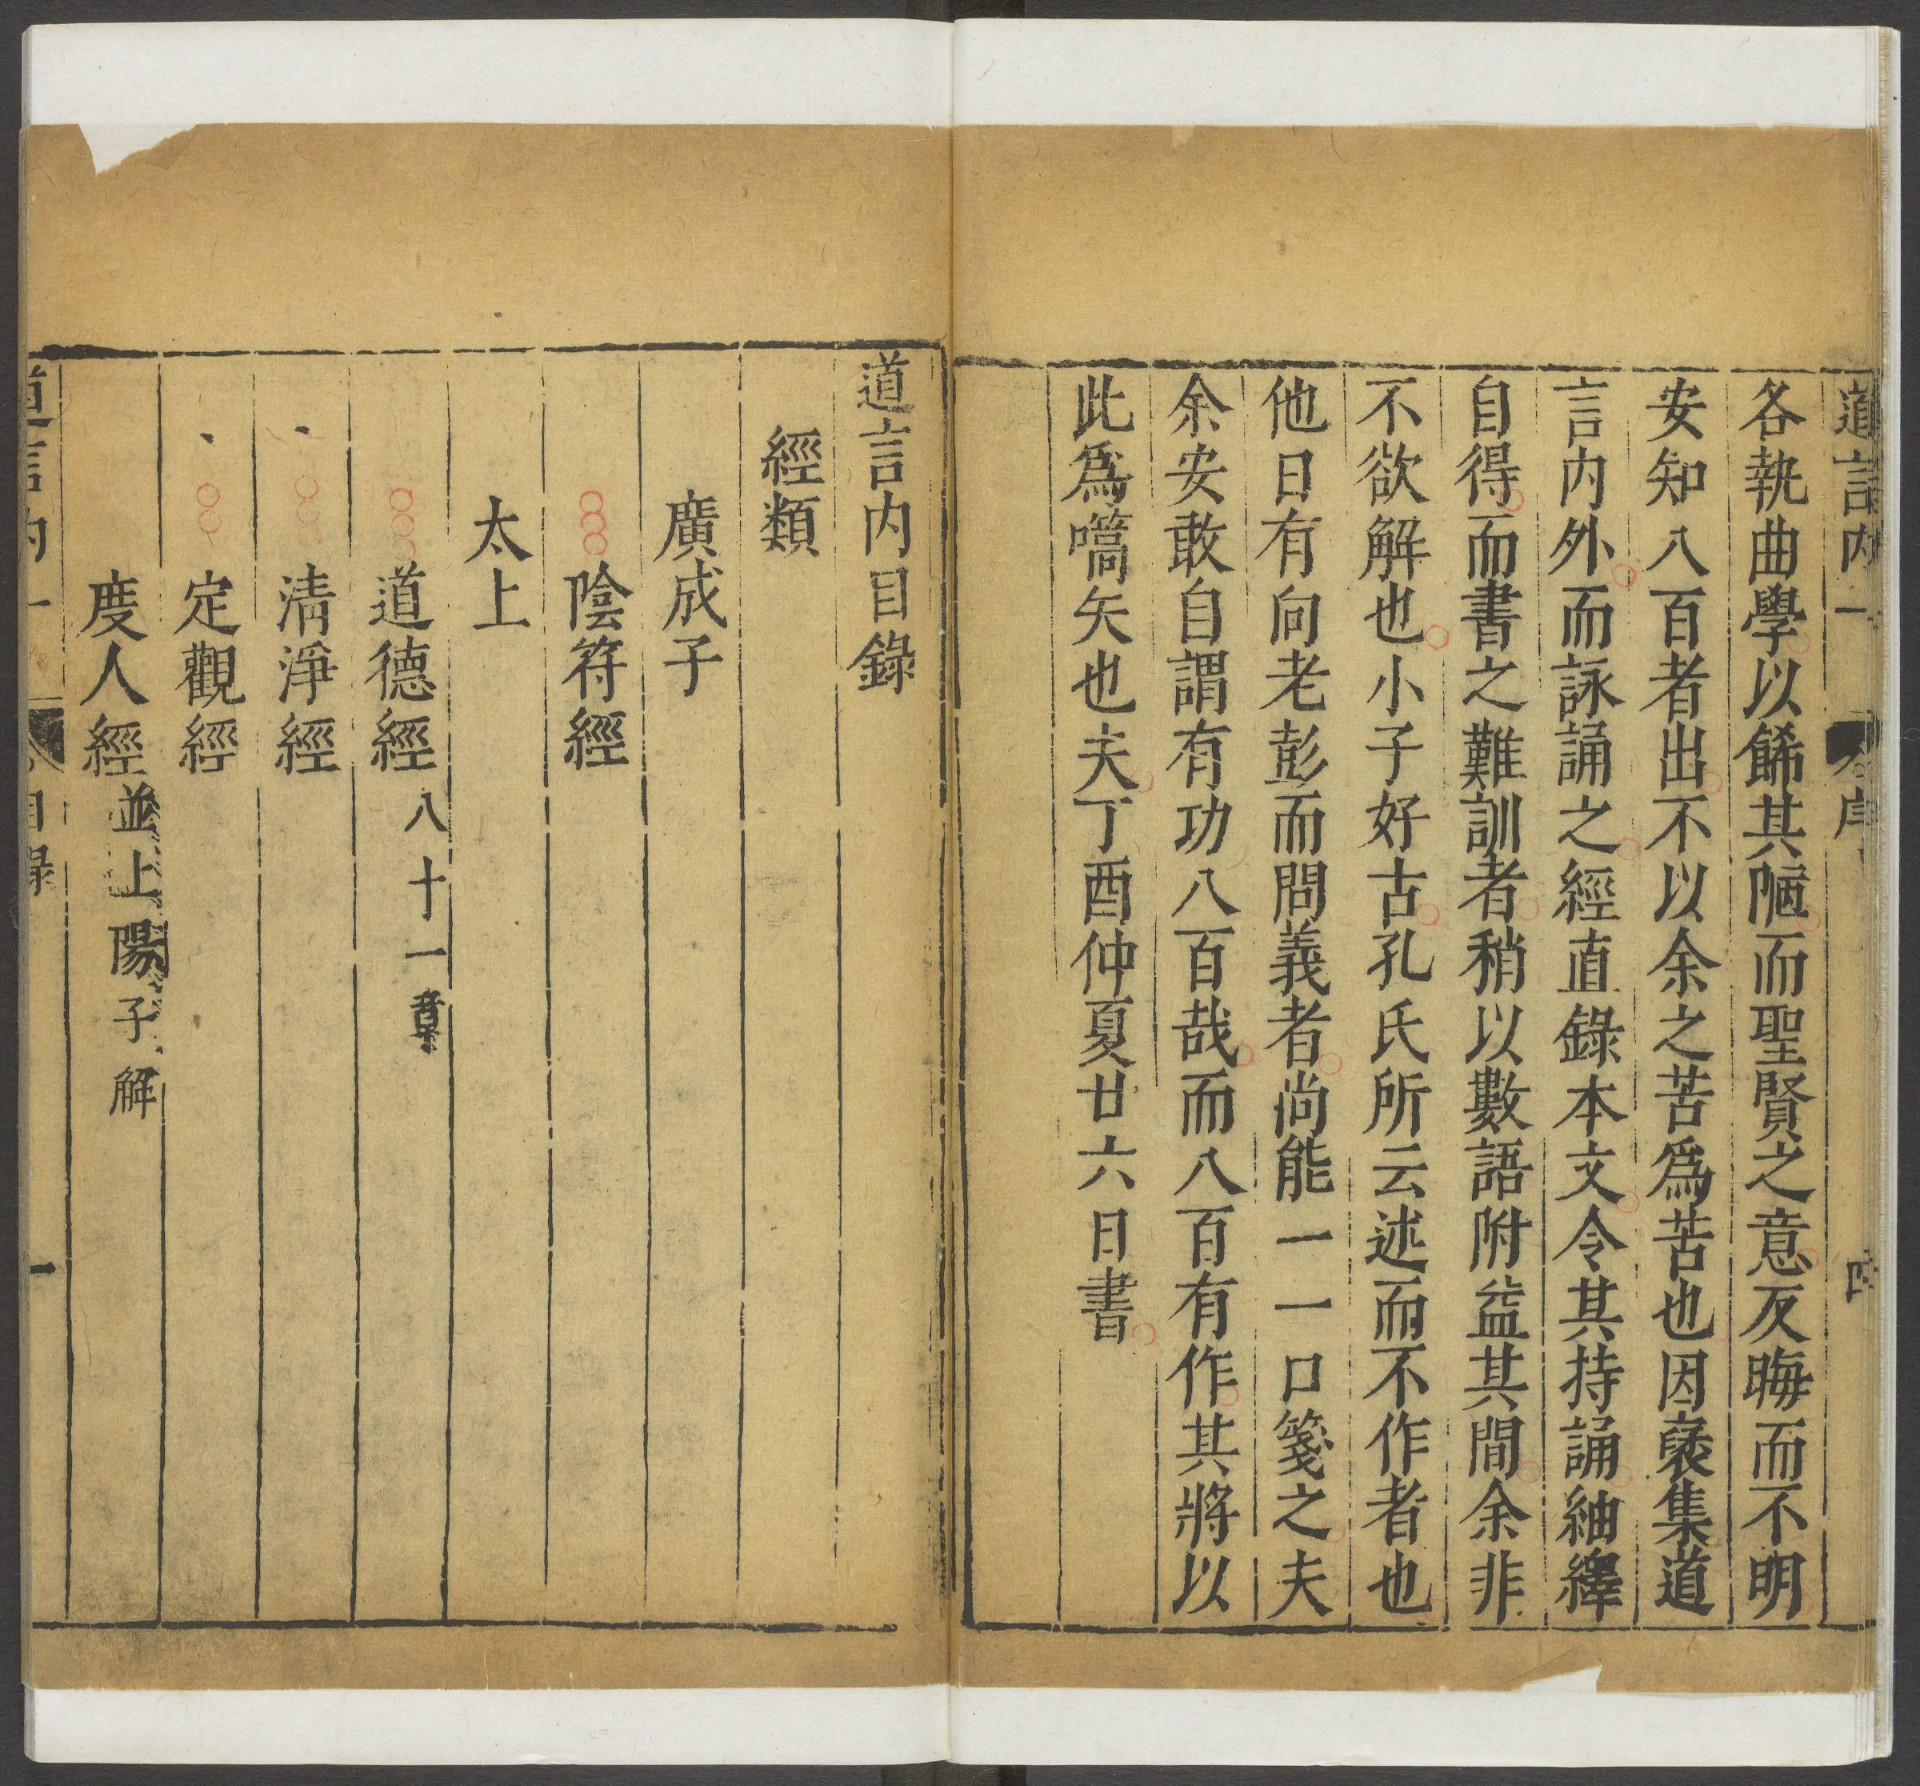 道言內一 序 四
各執曲學以餙其陋而聖賢之意反晦而不明
安知八百者出不以余之苦爲苦也因裒集道
言內外而詠誦之經直錄本文令其持誦紬繹
自得而書之難訓者稍以數語附益其間余非
不欲解也小子好古孔氏所云述而不作者也
他日有向老彭而問義者尚能一一口箋之夫
余安敢自謂有功八百哉而八百有作其將以
此爲嚆矢也夫丁酉仲夏廿六日書
道言內目錄
經類
廣成子
陰符經
太上
道德經八十一章
清淨經
定觀經
度人經並上陽子解
道言內一 目錄 一